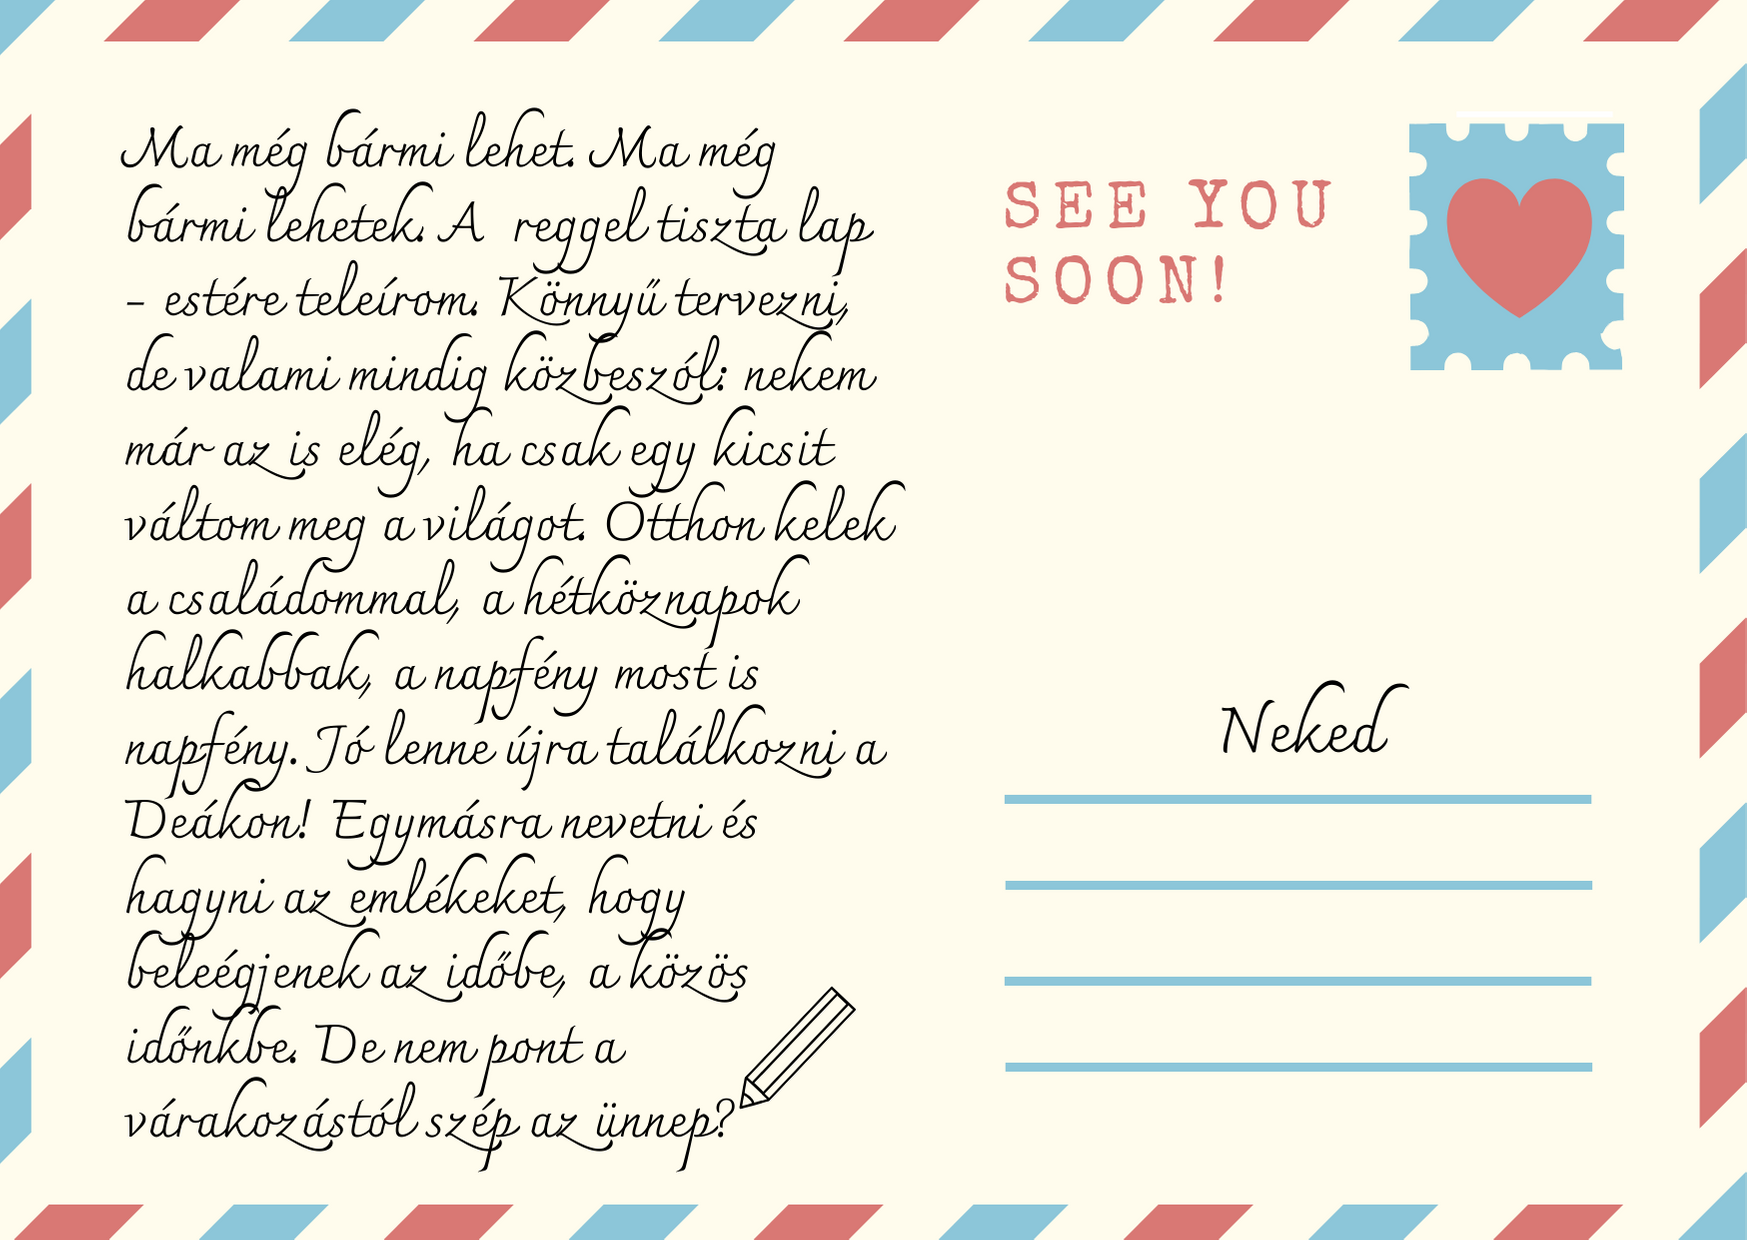 Ma még bármi lehet. Ma még
bármi lehetek. A reggel tiszta lap
- estére teleírom. Könnyű tervezni,
de valami mindig közbeszól: nekem
már az is elég, ha csak egy kicsit
váltom meg a világot. Otthon kelek
a családommal, a hétköznapok
halkabbak, a napfény most is
napfény. Jó lenne újra találkozni a
Deákon! Egymásra nevetni és
hagyni az emlékeket, hogy
beleégjenek az időbe, a közös
időnkbe. De nem pont a
várakozástól szép az ünnep?
SEE YOU
SOON!
Neked